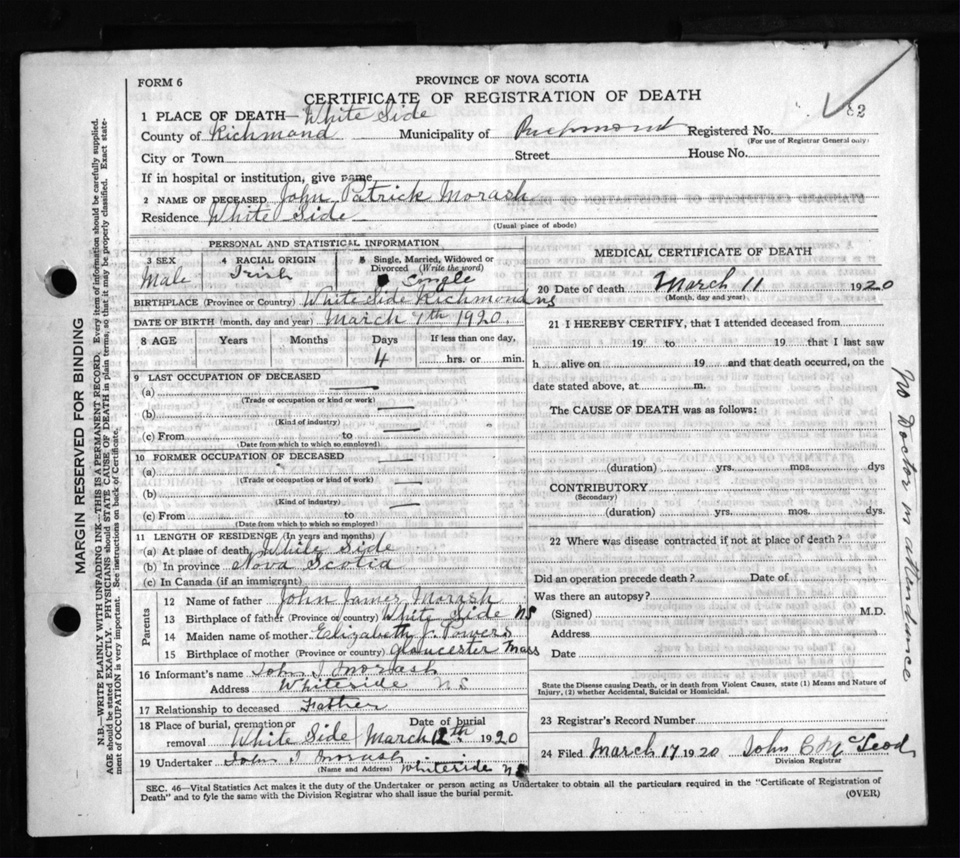 FORM 6
PROVINCE OF NOVA SCOTIA
CERTIFICATE OF REGISTRATION OF DEATH
1 PLACE OF DEATH—White Side
County of Richmond Municipality of Richmond Registered No.
(For use of Registrar General only)
City or Town Street House No.
If in hospital or institution, give name
2 NAME OF DECEASED John Patrick Morash
Residence White Side
(Usual place of abode)
PERSONAL AND STATISTICAL INFORMATION
3 SEX 4 RACIAL ORIGIN 5 Single, Married, Widowed or
Divorced (Write the word)
Male Irish Single
BIRTHPLACE (Province or Country) White Side Richmond NS
DATE OF BIRTH (month, day and year) March 7th 1920
8 AGE Years Months Days If less than one day,
4 hrs. or min.
9 LAST OCCUPATION OF DECEASED
(a)
(Trade or occupation or kind or work)
(b)
(Kind of industry)
(c) From to
(Date from which to which so employed)
10 FORMER OCCUPATION OF DECEASED
(a)
(Trade or occupation or kind of work)
(b)
(Kind of industry)
(c) From to
(Date from which to which so employed)
11 LENGTH OF RESIDENCE (In years and months)
(a) At place of death White Side
(b) In province Nova Scotia
(c) In Canada (if an immigrant)
Parents
12 Name of father John James Morash
13 Birthplace of father (Province or country) White Side NS
14 Maiden name of mother Elizabeth J. Powers
15 Birthplace of mother (Province or country) Gloucester Mass
16 Informant's name John J Morash
Address Whiteside N S
17 Relationship to deceased Father
18 Place of burial, cremation or removal White Side Date of burial March 12th 1920
19 Undertaker John J Morash Whiteside NS
(Name and Address)
MEDICAL CERTIFICATE OF DEATH
20 Date of death March 11 1920
(Month, day and year)
21 I HEREBY CERTIFY, that I attended deceased from
19 to 19 that I last saw
h alive on 19 and that death occurred, on the
date stated above, at m.
The CAUSE OF DEATH was as follows:
(duration) yrs. mos. dys
CONTRIBUTORY
(Secondary)
(duration) yrs. mos. dys.
22 Where was disease contracted if not at place of death?
Did an operation precede death? Date of
Was there an autopsy?
(Signed) M.D.
Address
Date
State the Disease causing Death, or in death from Violent Causes, state (1) Means and Nature of
Injury, (2) whether Accidental, Suicidal or Homicidal.
23 Registrar's Record Number
24 Filed March 17 1920 John C McLeod
Division Registrar
No Doctor in attendance
SEC. 46—Vital Statistics Act makes it the duty of the Undertaker or person acting as Undertaker to obtain all the particulars required in the "Certificate of Registration of
Death" and to fyle the same with the Division Registrar who shall issue the burial permit.
(OVER)
MARGIN RESERVED FOR BINDING
N.B.—WRITE PLAINLY WITH UNFADING INK—THIS IS A PERMANENT RECORD. Every item of information should be carefully supplied.
AGE should be stated EXACTLY. PHYSICIANS should STATE CAUSE OF DEATH in plain terms, so that it may be properly classified. Exact state-
ment of OCCUPATION is very important. See instructions on back of Certificate.